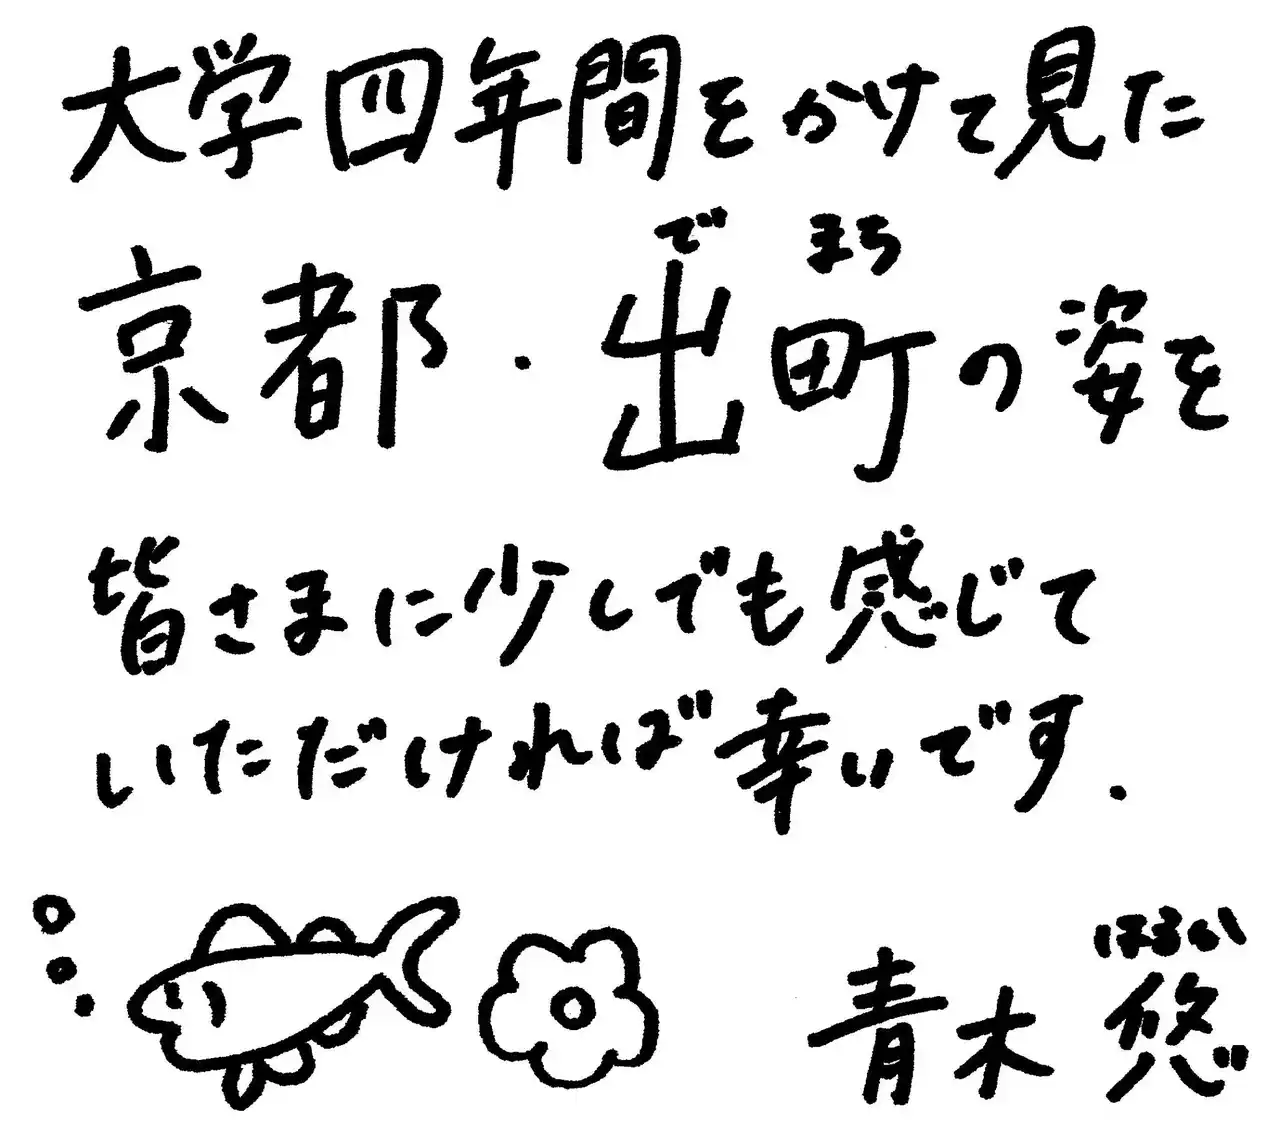 大学四年間をかけて見た
でまち
京都・出町の姿を
皆さまに少しでも感じて
いただければ幸いです.
はるか
青木 悠